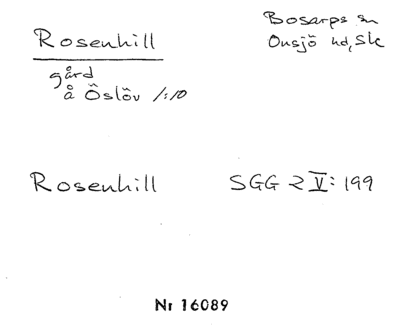 Rosenhill
Bosarps sn
Onsjö hd, Sk
gård
å Öslöv 1:10
Rosenhill SGG 2 V: 199
Nr 16089